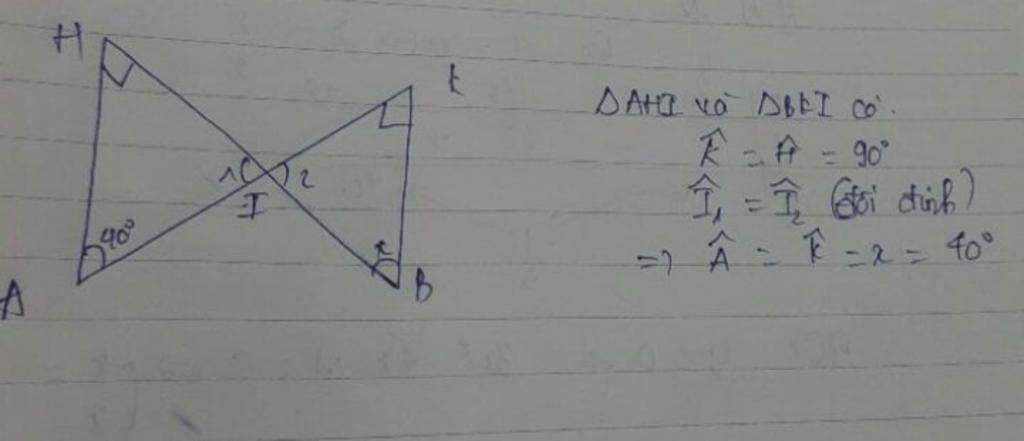 H
K
1
2
I
40°
x
A
B
ΔAHI và ΔBKI có.
K̂ = Ĥ = 90°
Î₁ = Î₂ (đối đỉnh)
=> Â = K̂ = x = 40°